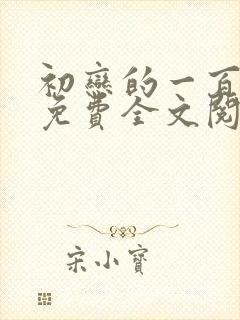 初戀的一百
免費全文閱
宋小寶